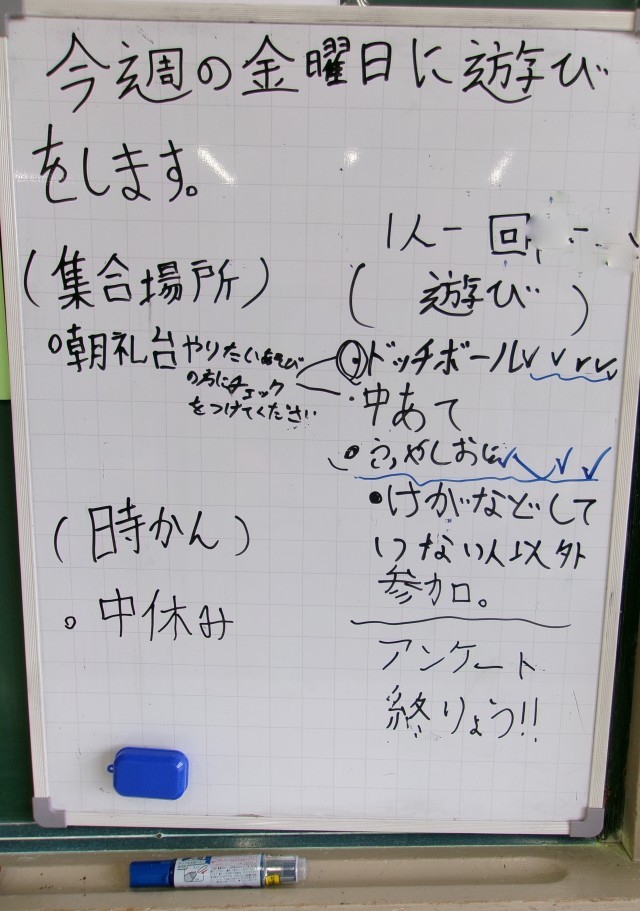 今週の金曜日に遊び
をします。
(集合場所)
朝礼台
やりたいあそび
の方にチェック
をつけてください
(時かん)
中休み
1人一回
(遊び)
ドッチボール
・中あて
ふやしおに
●けがなどして
いない人以外
参加。
アンケート
終りょう!!